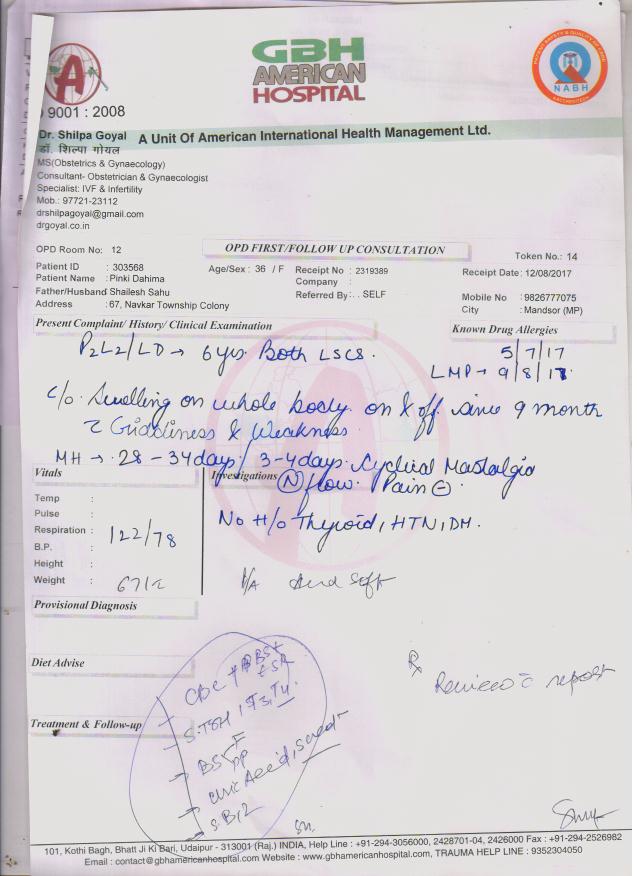 GBH
AMERICAN
HOSPITAL
A
9001 : 2008
PATIENT SAFETY & QUALITY OF CARE
NABH
ACCREDITATION
Dr. Shilpa Goyal
A Unit Of American International Health Management Ltd.
डॉ. शिल्पा गोयल
MS(Obstetrics & Gynaecology)
Consultant- Obstetrician & Gynaecologist
Specialist: IVF & Infertility
Mob.: 97721-23112
drshilpagoyal@gmail.com
drgoyal.co.in
OPD Room No: 12
OPD FIRST/FOLLOW UP CONSULTATION
Token No.: 14
Patient ID : 303568
Age/Sex : 36 / F
Receipt No : 2319389
Receipt Date: 12/08/2017
Patient Name : Pinki Dahima
Company :
Father/Husband Shailesh Sahu
Referred By : . . SELF
Mobile No : 9826777075
Address : 67, Navkar Township Colony
City : Mandsor (MP)
Present Complaint/ History/ Clinical Examination
Known Drug Allergies
P2L2/LD → 6 yrs. Both LSCS.
5/7/17
LMP → 9/8/17
c/o. Swelling on whole body. on & off. since 9 month
c̄ Giddiness & Weakness.
MH → 28 - 34 days / 3-4 days. Cyclical Mastalgia
(N) flow. Pain ⊖.
Vitals
Investigations
Temp :
Pulse :
Respiration :
B.P. :
122/78
Height :
Weight :
No H/o Thyroid, HTN, DM.
P/A
soft
Provisional Diagnosis
Diet Advise
Treatment & Follow-up
CBC +
ESR
S.TSH, T3, T4.
BS F
PP
Uric Acid,
S.B12
Rx
Review c̄ report
101, Kothi Bagh, Bhatt Ji Ki Bari, Udaipur - 313001 (Raj.) INDIA, Help Line : +91-294-3056000, 2428701-04, 2426000 Fax : +91-294-2526982
Email : contact@gbhamericanhospital.com Website : www.gbhamericanhospital.com, TRAUMA HELP LINE : 9352304050